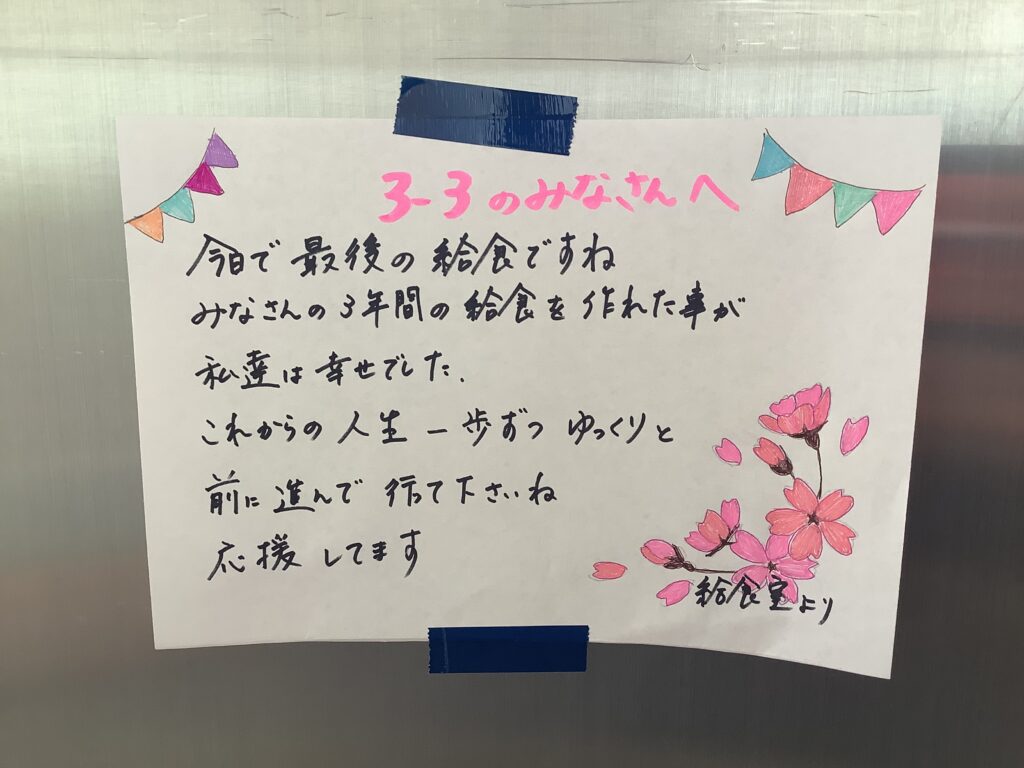 3-3のみなさんへ
今日で最後の給食ですね
みなさんの3年間の給食を作れた事が
私達は幸せでした.
これからの人生一歩ずつゆっくりと
前に進んで行って下さいね
応援してます
給食室より